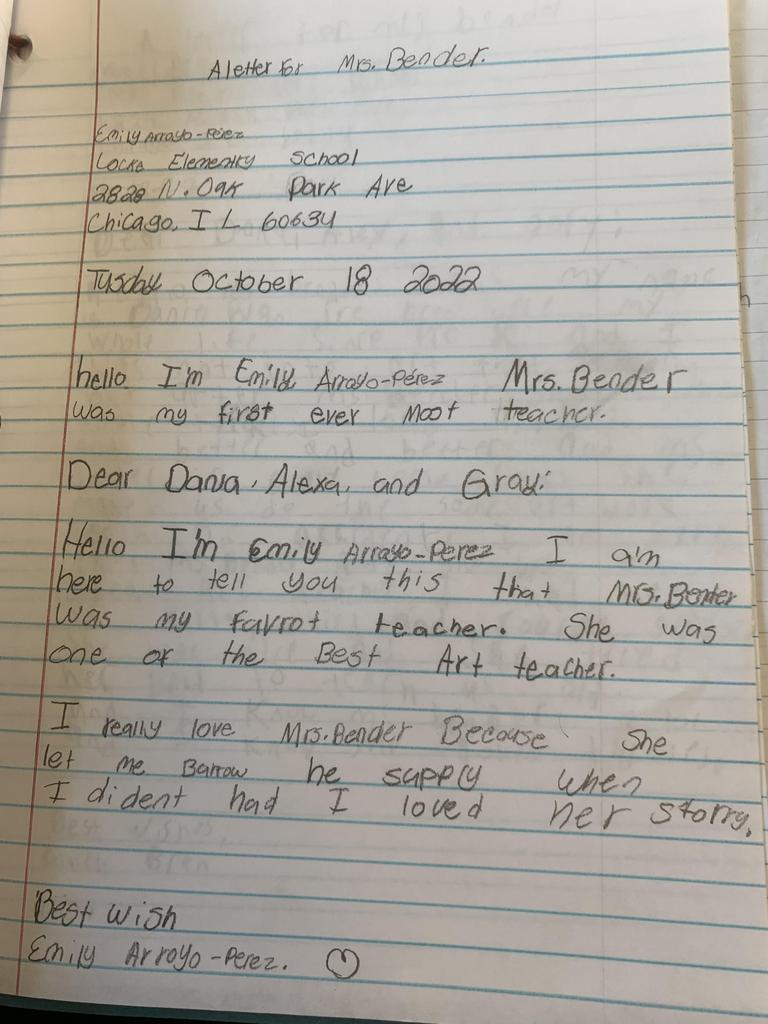 A letter for Mrs. Bender.
Emily Arrayo-Pérez
Locke Elementry School
2828 N. Oak Park Ave
Chicago, IL 60634
Tusday October 18 2022
hello I'm Emily Arrayo-Pérez Mrs. Bender
was my first ever moot teacher.
Dear Dania, Alexa, and Gray:
Hello I'm Emily Arrayo-Perez I am
here to tell you this that Mrs. Bender
was my favrot teacher. She was
one of the Best Art teacher.
I really love Mrs. Bender Because She
let me Barrow he supply when
I dident had I loved her storry.
Best wish
Emily Arroyo-Perez.